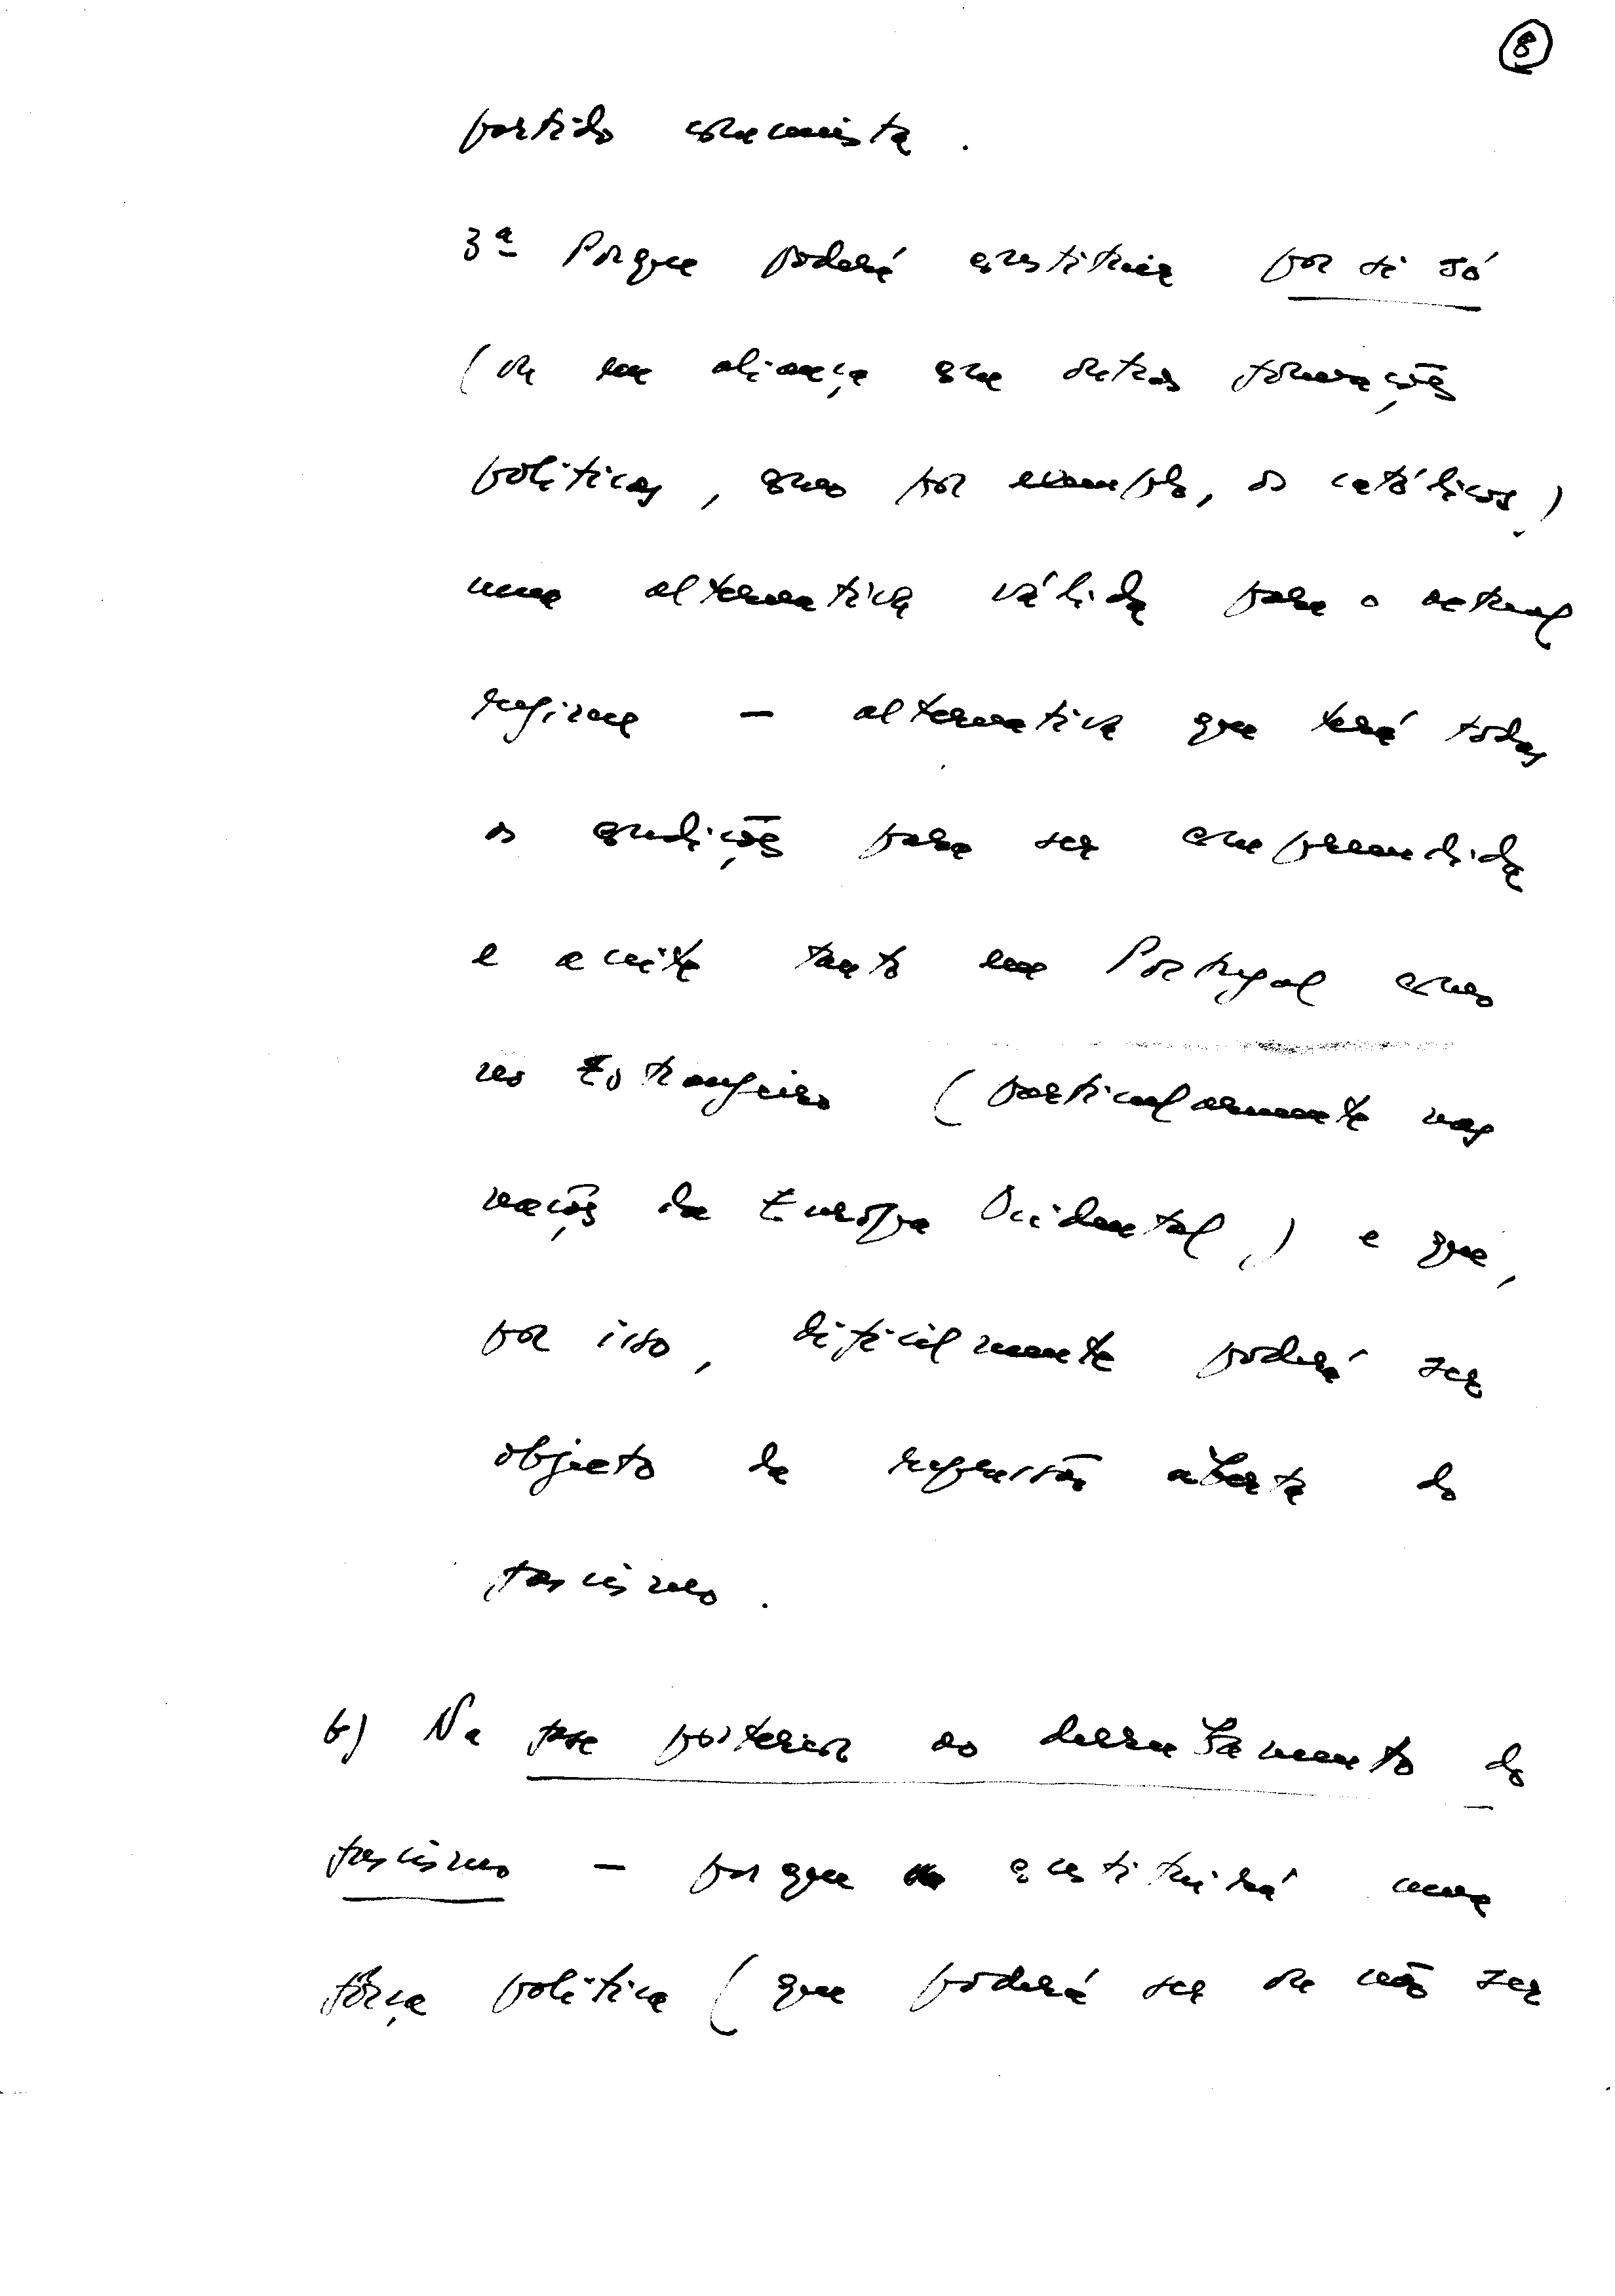 8
partido comunista.
3ª Porque poderá constituir por si só
(ou em aliança com outras formações
políticas, como por exemplo, os católicos,)
uma alternativa válida para o actual
regime — alternativa que terá todas
as condições para ser compreendida
e aceite tanto em Portugal como
no Estrangeiro (particularmente nas
nações da Europa Ocidental,) e que,
por isso, dificilmente poderá ser
objecto de repressão aberta do
fascismo.
b) Na fase posterior ao derrubamento do
fascismo — porque constituirá uma
fôrça política (que poderá ser ou não ser